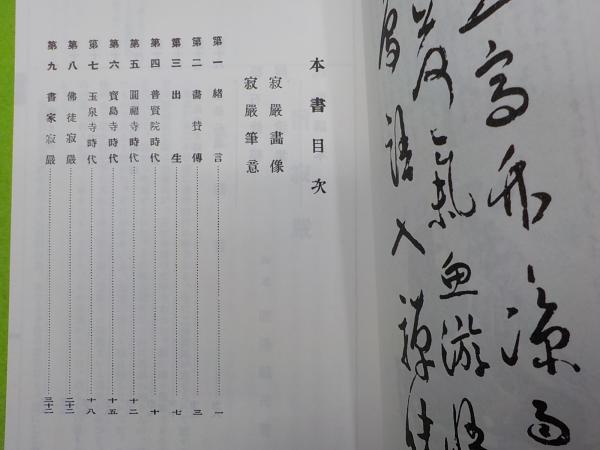 本書目次
寂嚴畫像
寂嚴筆意
第一 緒言 一
第二 書贊傳 三
第三 出生 七
第四 普賢院時代 十
第五 圓福寺時代 十二
第六 寶島寺時代 十五
第七 玉泉寺時代 十八
第八 佛徒寂嚴 二十二
第九 書家寂嚴 三十二
高
涼
氣魚游
入禪